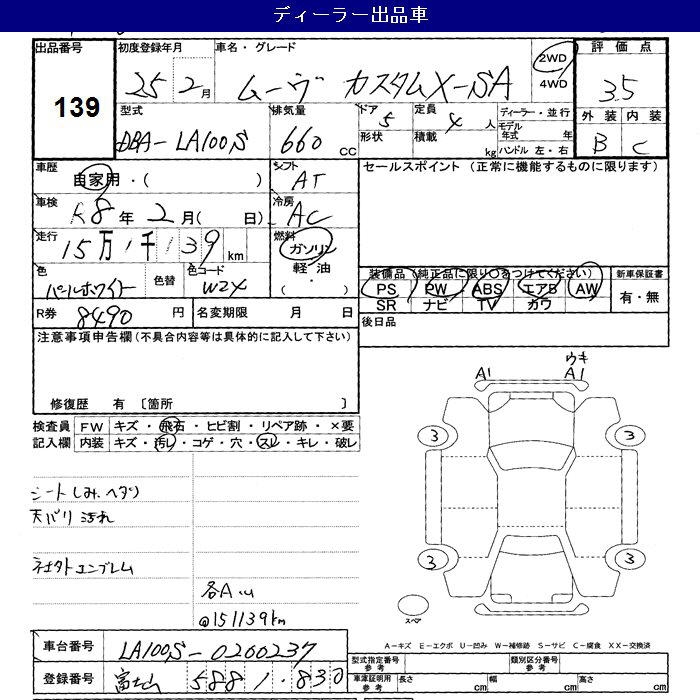 ディーラー出品車
出品番号 初度登録年月 車名・グレード 2WD 評価点
139 25 2月 ムーヴ カスタムX-SA 4WD 3.5
型式 排気量 ドア 定員 ディーラー・並行 外装 内装
DBA-LA100S 660cc 5 4人 モデル年式 年 B C
形状 積載 kg ハンドル 左・右
車歴 自家用・( ) シフト AT セールスポイント(正常に機能するものに限ります)
車検 R8年2月( 日) 冷房 AC
走行 15万1千139km 燃料 ガソリン 軽油 ・( )
色 パールホワイト 色替 色コード W24
装備品(純正品に限り○をつけてください) 新車保証書
PS PW ABS エアB AW 有・無
SR ナビ TV カワ
R券 8490円 名変期限 月 日 後日品
注意事項申告欄(不具合内容等は具体的に記入して下さい)
修復歴 有 〔箇所 〕
検査員記入欄 FW キズ・飛石・ヒビ割・リペア跡・×要
内装 キズ・汚レ・コゲ・穴・スレ・キレ・破レ
A1 ウキ A1
3 3
3 3
シートしみ、ヘタリ
天バリ 汚れ
社外エンブレム
各A
@151139km
スペア
A-キズ E-エクボ U-凹み W-補修跡 S-サビ C-腐食 XX-交換済
車台番号 LA100S-0200237
型式指定番号 参考 類別区分番号 参考
登録番号 富士山 588 1・830
車庫証明用 参考 長さ cm 幅 cm 高さ cm